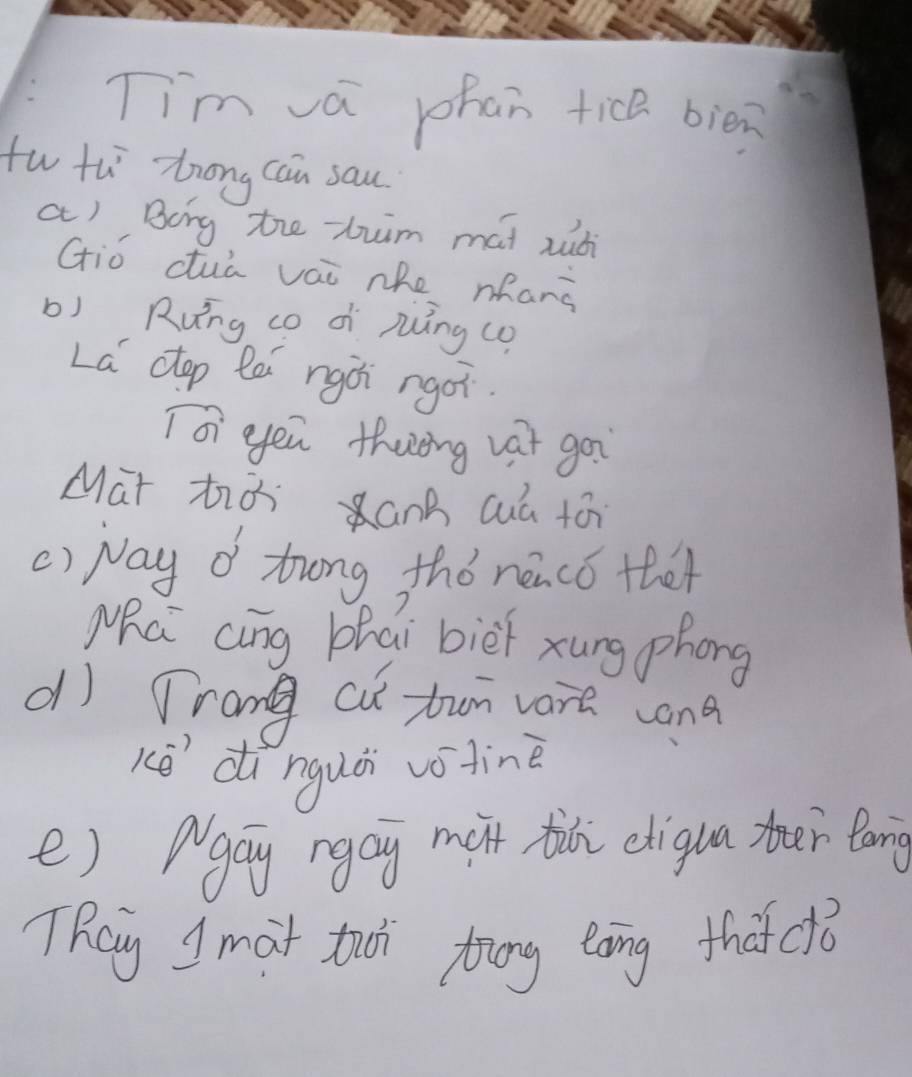 : Tìm và phân tích biện
tu từ trong câu sau.
a) Bóng tre trùm mát rượi
Gió đưa vào nhẹ nhàng
b) Rừng cọ ơi rừng cọ
Lá đẹp lá ngời ngời.
Tôi yêu thương vật gọi
Mặt trời xanh của tôi
c) Nay ở trong thơ nên có thét
Nhà cũng phải biết xung phong
d) Trăng cứ tròn vành vạnh
Kể đi người vô tình
e) Ngày ngày mặt trời đi qua trên lăng
Thấy 1 mặt trời trong lăng thất đỏ